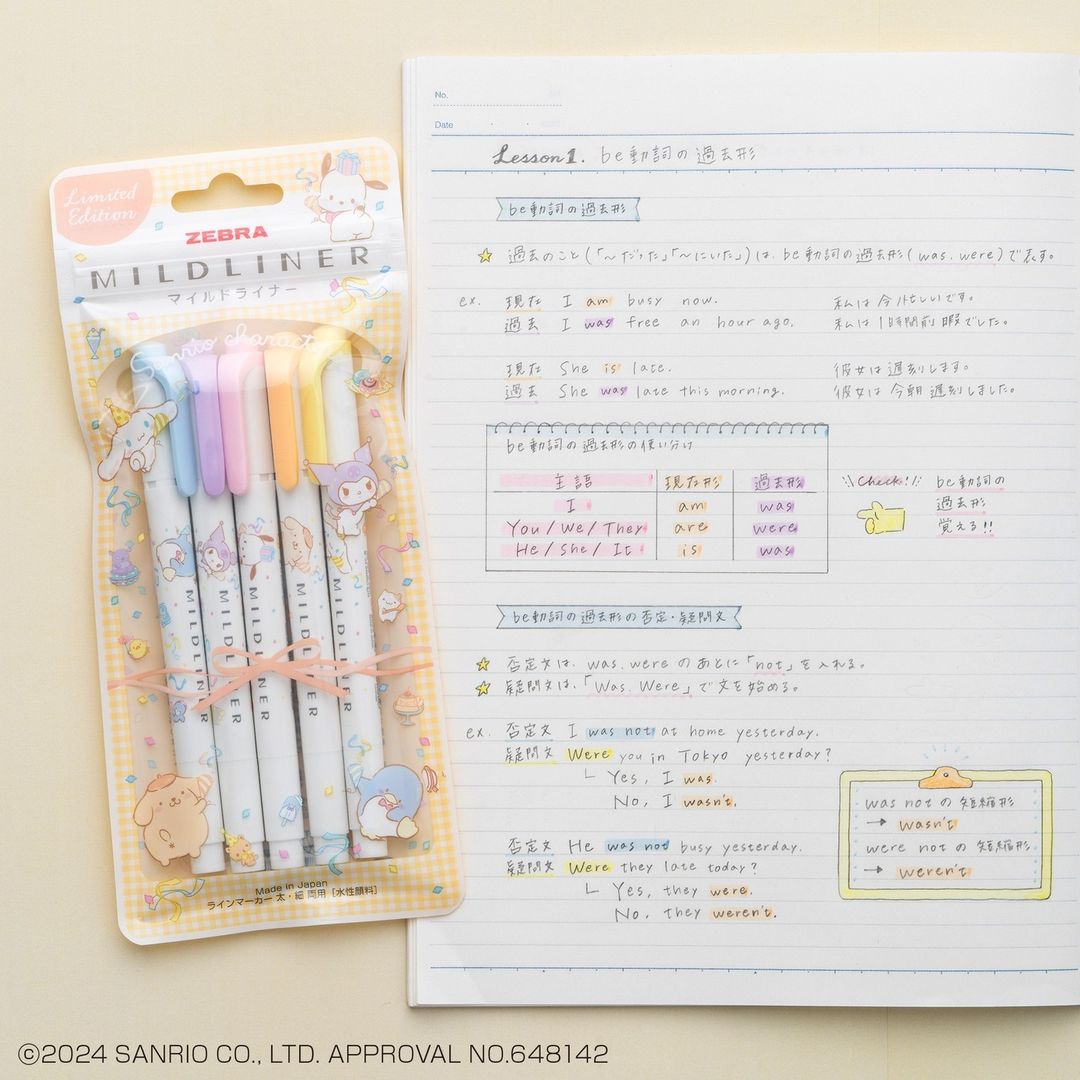 Limited
Edition
ZEBRA
MILDLINER
マイルドライナー
Sanrio characters
MILDLINER
MILDLINER
MILDLINER
MILDLINER
MILDLINER
Made in Japan
ラインマーカー 太・細 両用 [水性顔料]
No.
Date
Lesson1. be動詞の過去形
be動詞の過去形
過去のこと(「～だった」「～にいた」)は、be動詞の過去形(was. were)で表す。
ex. 現在 I am busy now. 私は今忙しいです。
過去 I was free an hour ago. 私は1時間前暇でした。
現在 She is late. 彼女は遅刻します。
過去 She was late this morning. 彼女は今朝遅刻しました。
be動詞の過去形の使い分け
主語 現在形 過去形
I am was
You/We/They are were
He/She/It is was
\\Check!// be動詞の
過去形
覚える!!
be動詞の過去形の否定・疑問文
否定文は、was. were のあとに「not」を入れる。
疑問文は、「Was. Were」で文を始める。
ex. 否定文 I was not at home yesterday.
疑問文 Were you in Tokyo yesterday?
└ Yes, I was.
No, I wasn't.
否定文 He was not busy yesterday.
疑問文 Were they late today?
└ Yes, they were.
No, they weren't.
was not の短縮形
→ wasn't
were not の短縮形
→ weren't
©2024 SANRIO CO., LTD. APPROVAL NO.648142